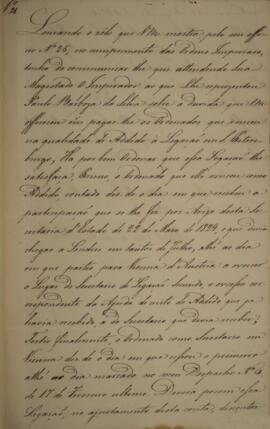 Nº 21
Louvando o zelo que V. M. mostra pelo seu offi-
cio Nº 25, no cumprimento das Ordens Imperiaes,
tenho de communicar lhe que attendendo Sua
Magestade O Imperador ao que Lhe representou
Paulo Barboza da Silva sobre a duvida que V. M.
offerece em pagar lhe os Ordenados que venceu
na qualidade de Addido á Legação em S. Peters-
burgo, Ha por bem Ordenar que essa Legação lhe
satisfaça, o Ordenado que elle venceu como
Addido, contado desde o dia em que recebeu a
participação que se lhe fez por Aviso desta Se-
cretaria d'Estado de 22 de Março de 1829, e que devia
chegar a Londres em tantos de Julho, até ao dia
em que partio para Vienna d'Austria a exercer
o Lugar de Secretario de Legação, sendo o excesso cor-
respondente da Ajuda de custo de Addido que ja
havia recebido, á de Secretario que devia receber;
e finalmente, o Ordenado como Secretario em
Vienna desde o dia em que o primeiro
até ao dia marcado no seu Despacho Nº 4,
de 17 de Fevereiro ultimo. Devera porem essa
Legação, no ajustamento desta conta, descontar